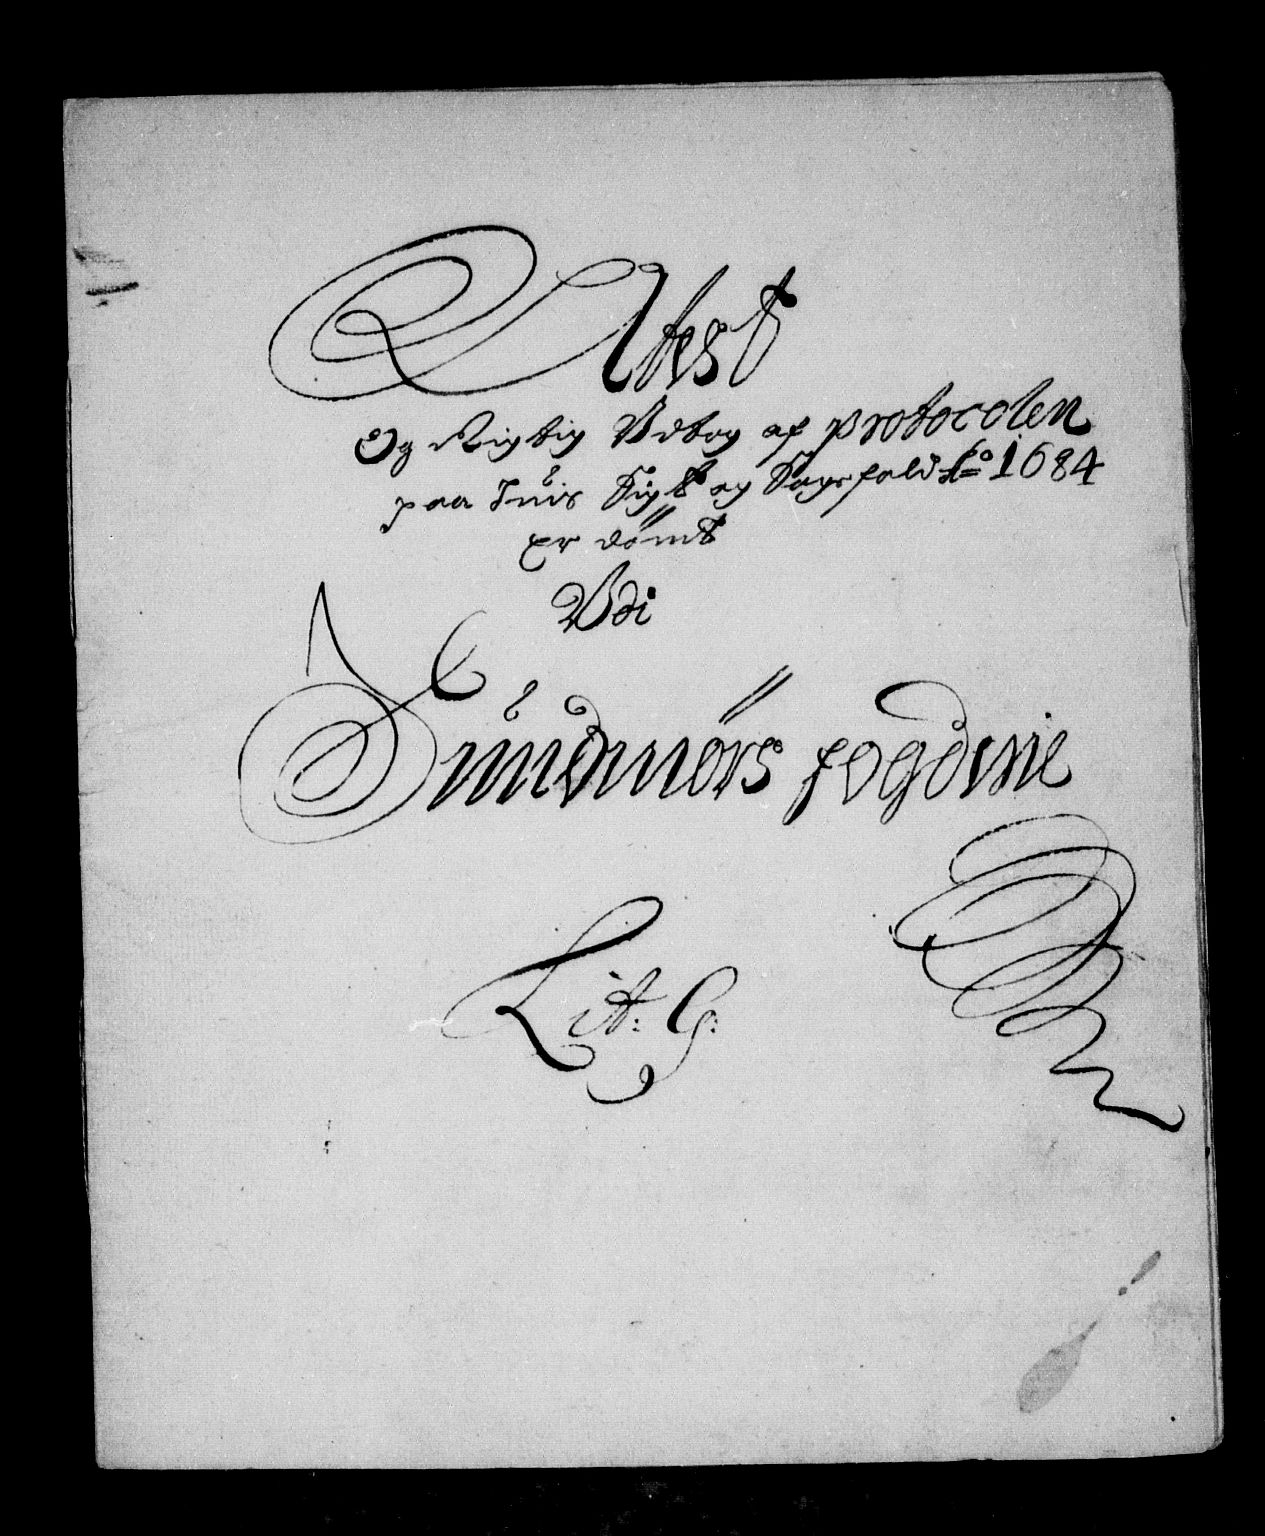 Attest
Og Rigtig Udtog af protocolen
paa huis Sigt og Sagefald Ao 1684
er dömt
Udi
Sundmörs fogderie
Lit: G: